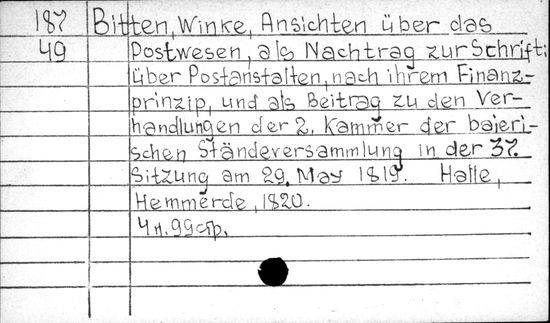 187 Bitten, Winke, Ansichten über das
49 Postwesen, als Nachtrag zur Schrift:
über Postanstalten, nach ihrem Finanz-
prinzip, und als Beitrag zu den Ver-
handlungen der 2. Kammer der baieri-
schen Ständeversammlung in der 37.
Sitzung am 29. May 1819. Halle,
Hemmerde, 1820.
4 н. 99 стр.